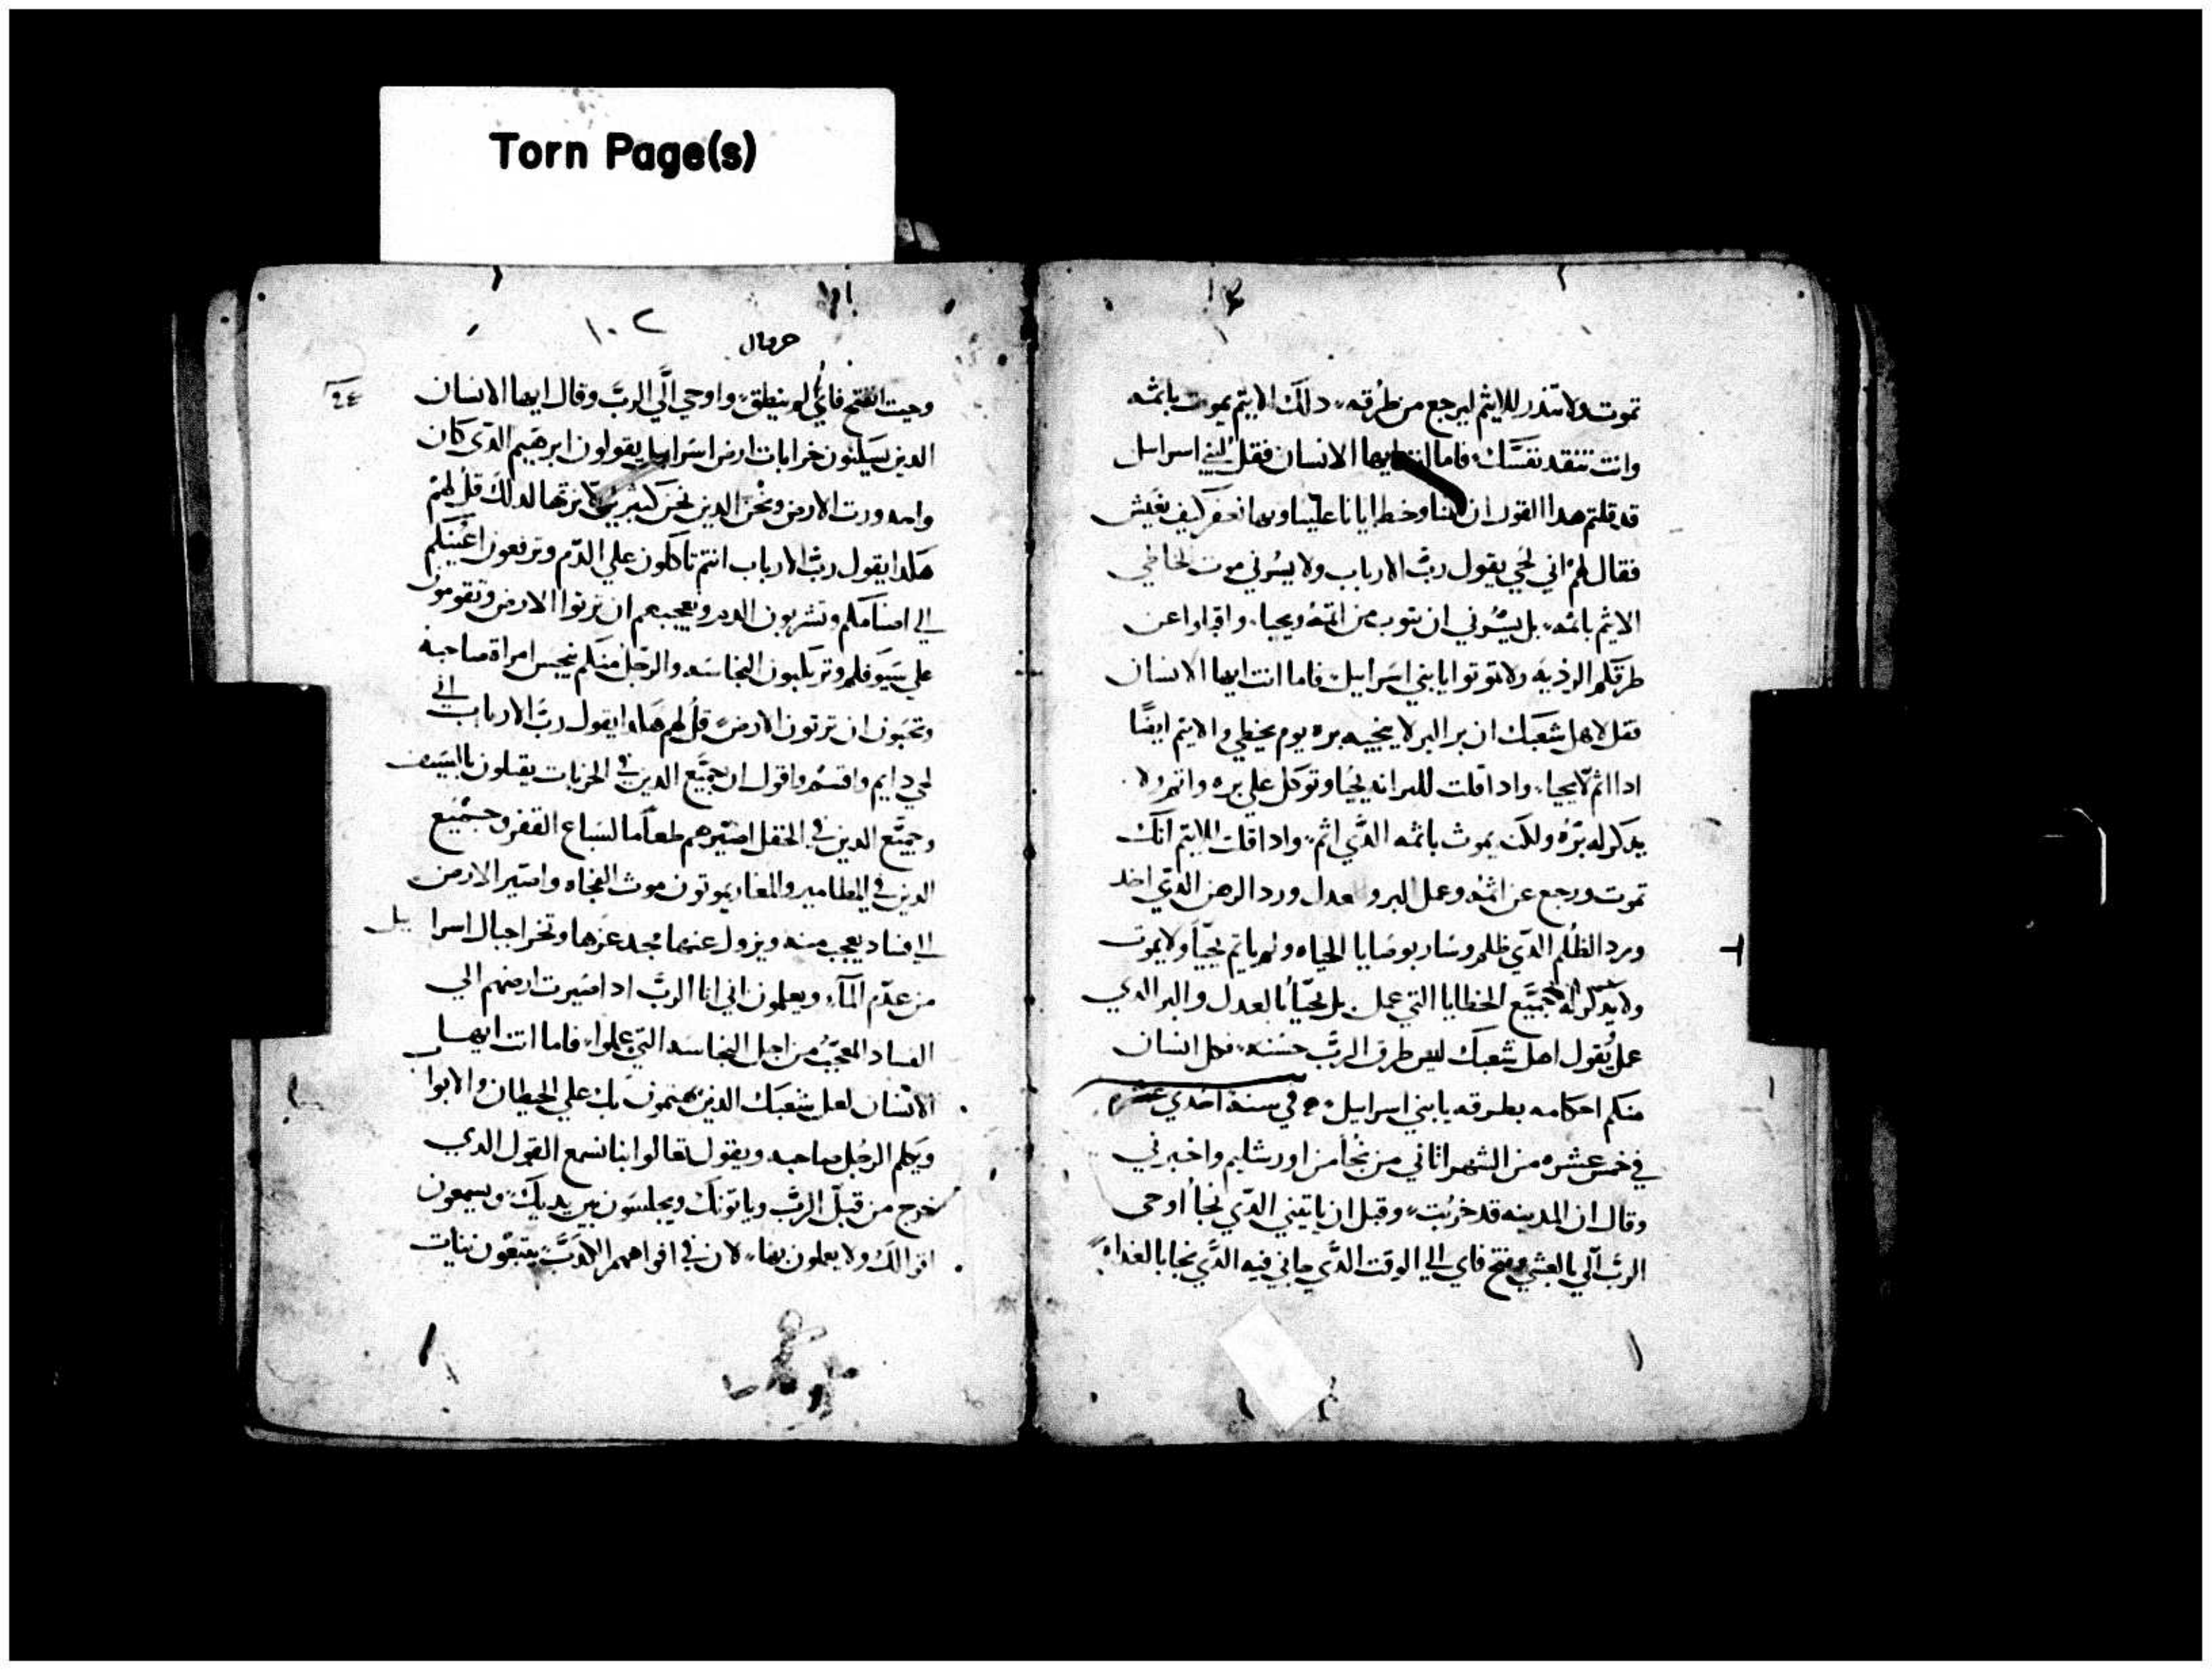 Torn Page(s)
تموت ولا تنذر للايثم ليرجع من طرقه دلك الايثم يموت باثمه
وانت تنقد نفسك فاما انت ايها الانسان فقل لبني اسراييل
قد قلتم هدا القول ان وخطايانا علينا وبها كيف نعيش
فقال لهم اني لحي يقول رب الارباب ولا يسرني موت الخاطي
الايثم باثمه بل يسرني ان يتوب من اثمه ويحيا واقبلوا عن
طرقكم الرديه ولا تموتوا يا بني اسراييل فاما انت ايها الانسان
فقل لاهل شعبك ان بر البر لا ينجيه بره يوم يخطي والايثم ايضا
ادا اثم لا يحيا وادا قلت للبر انه يحيا وتوكل علي بره واثم ولا
يدكر له بره ولكن يموت باثمه الدي اثم وادا قلت للايثم انك
تموت ورجع عن اثمه وعمل البر والعدل ورد الرهن الدي اخد
ورد الظلم الدي ظلم وسار بوصايا الحياه ولم ياثم يحيا ولا يموت
ولا يدكر له جميع الخطايا التي عمل بل يحيا بالعدل والبر الدي
عمل يقول اهل شعبك ليس طرق الرب حسنه فكل انسان
منكم احكامه بطرقه يا بني اسراييل في سنة احدي عشره
في خمس عشره من الشهر الثاني من نجا من اورشليم واخبرني
وقال ان المدينه قد خربت وقبل ان ياتيني الدي نجا اوحي
الرب الي بالعشي وفتح فاي الي الوقت الدي جاني فيه الدي نجا بالغداه
١٠٢
حزقيال
وحيت انفتح فاي لم ينطق واوحي الي الرب وقال ايها الانسان
الدين يسكنون خرابات ارض اسراييل يقولون ابرهيم الدي كان
واحد ورت الارض ونحن الدين نحن كثير لا نرثها لدلك قل لهم
هكدا يقول رب الارباب انتم تاكلون علي الدم وترفعون اعينكم
الي اصنامكم وتشربون الدم ويعجبهم ان ترتوا الارض وتقومون
علي سيوفكم وترتكبون النجاسه والرجل منكم ينجس امراة صاحبه
وتحبون ان ترتون الارض قل لهم هكدا يقول رب الارباب اني
لحي دايم واقسم واقول ان جميع الدين في الخربات يقتلون بالسيف
وجميع الدين في الحقل اصيرهم طعاما لسباع القفر وجميع
الدين في المطامير والمغار يموتون موت الفجاه واصير الارض
الي فساد يعجب منه ويزول عنها مجد عزها وتخر اجبال اسراييل
من عدم المآء ويعلمون اني انا الرب ادا صيرت ارضهم الي
الفساد المعجب من اجل النجاسه التي عملوا فاما انت ايها
الانسان لعل شعبك الدين يهتمون بك علي الحيطان والابواب
ويكلم الرجل صاحبه ويقول تعالوا بنا نسمع القول الدي
خرج من قبل الرب وياتونك ويجلسون بين يديك ويسمعون
اقوالك ولا يعملون بها لان في افواههم الكدب يتبعون نيات